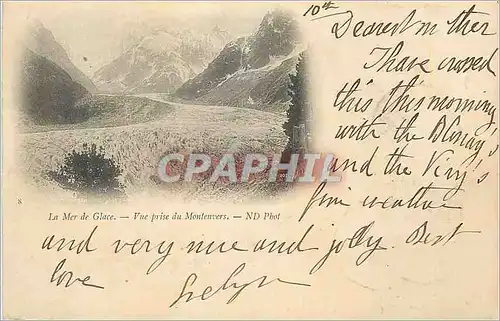 10th
Dearest mother
I have crossed
this this morning
with the
and the
fine weather
and very nice and jolly. Best
love
Evelyn
CPARAMA.COM
8
La Mer de Glace. — Vue prise du Montenvers. — ND Phot